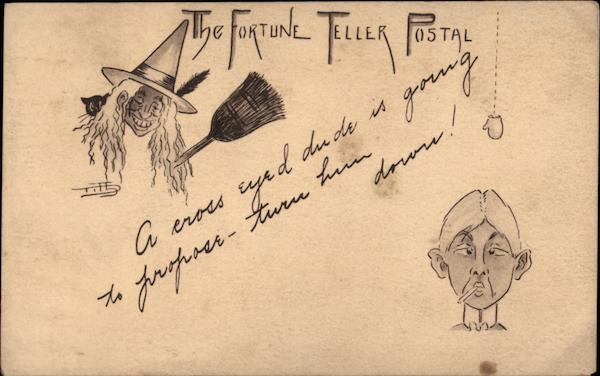 The Fortune Teller Postal
A cross eyed dude is going
to propose - turn him down!